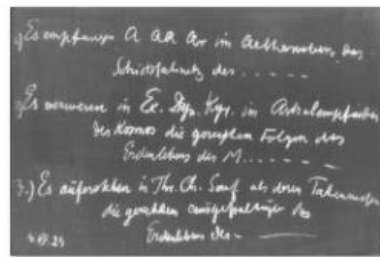 1) Es empfangen A AA Ar im Aetherweben das
Schicksalsnetz des . . . . .
2) Es verwesen in Ex. Dyn. Kyr. im Astralempfinden
des Kosmos die gerechten Folgen des
Erdenlebens des M . . . . . .
3.) Es auferstehen in Thr. Ch. Seraf. als deren
die gerechten des
Erdenlebens des